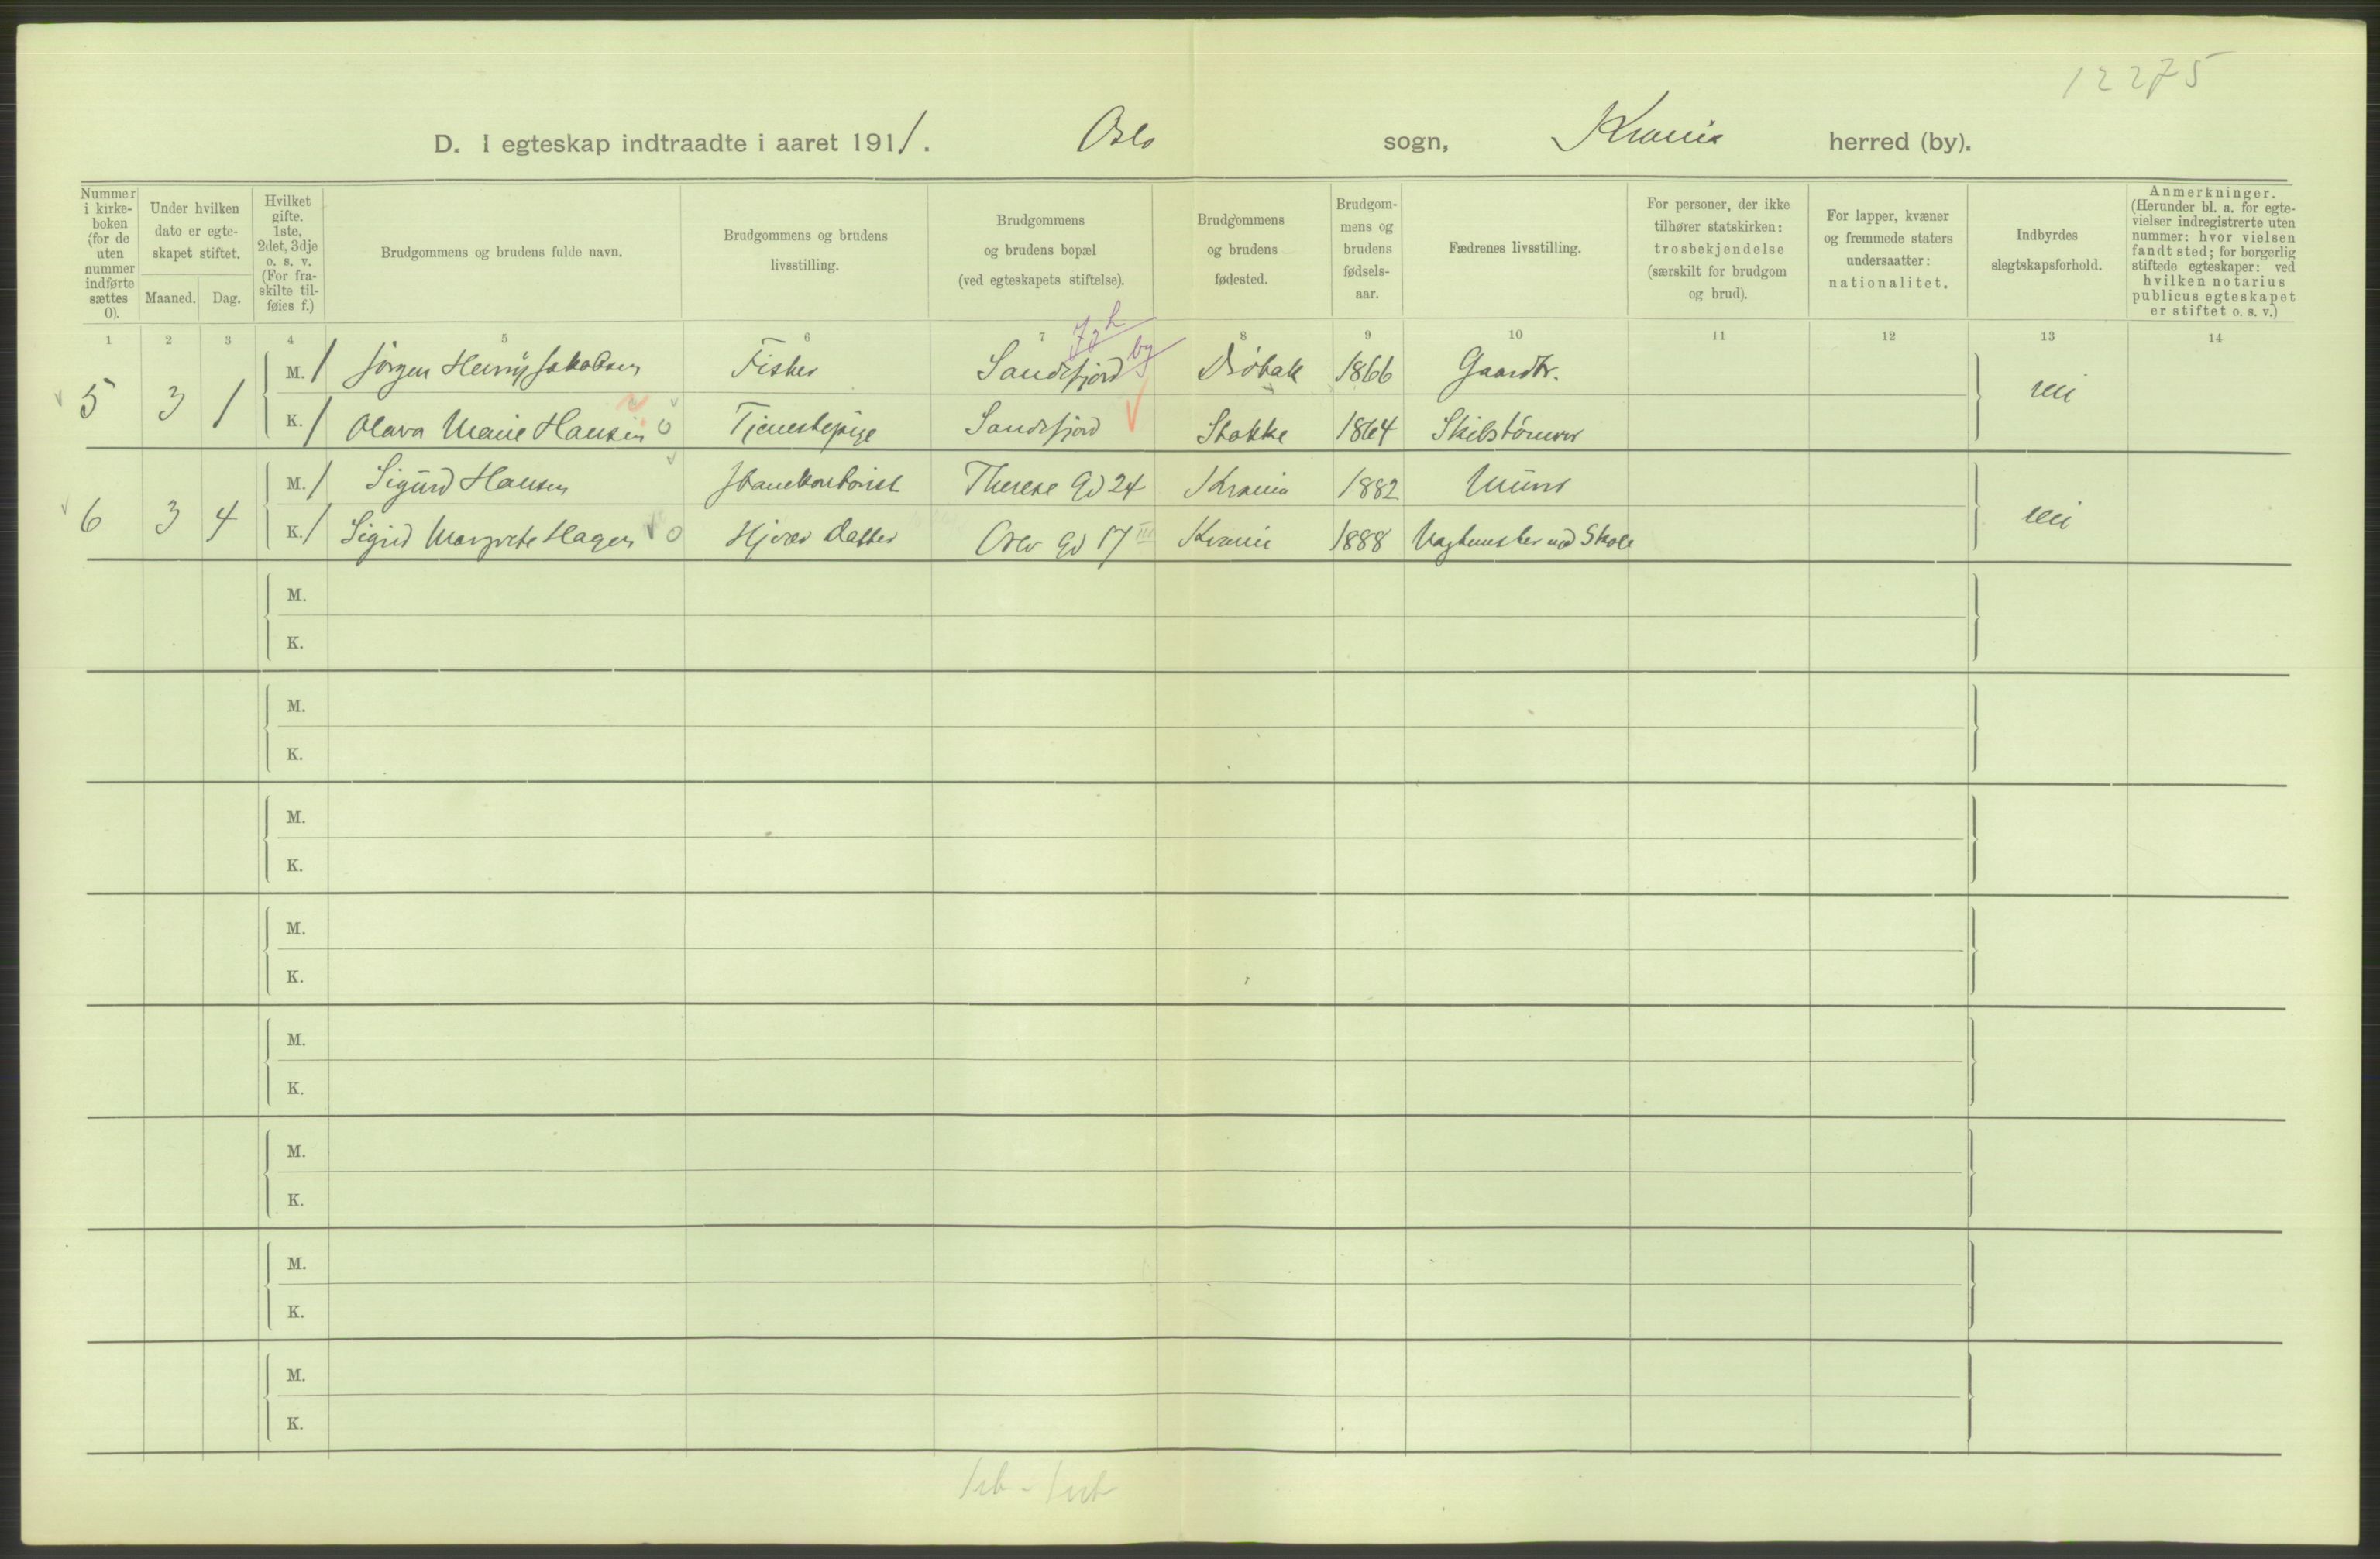 12275
D. I egteskap indtraadte i aaret 1911. Oslo sogn, Krania herred (by).
Nummer i kirkeboken (for de uten nummer indførte sættes 0).
Under hvilken dato er egteskapet stiftet.
Maaned. Dag.
Hvilket gifte. 1ste, 2det, 3dje o. s. v. (For fraskilte tilføies f.)
Brudgommens og brudens fulde navn.
Brudgommens og brudens livsstilling.
Brudgommens og brudens bopæl (ved egteskapets stiftelse).
Brudgommens og brudens fødested.
Brudgommens og brudens fødselsaar.
Fædrenes livsstilling.
For personer, der ikke tilhører statskirken: trosbekjendelse (særskilt for brudgom og brud).
For lapper, kvæner og fremmede staters undersaatter: nationalitet.
Indbyrdes slegtskapsforhold.
Anmerkninger. (Herunder bl. a. for egtevielser indregistrerte uten nummer: hvor vielsen fandt sted; for borgerlig stiftede egteskaper: ved hvilken notarius publicus egteskapet er stiftet o. s. v.)
1 2 3 4 5 6 7 8 9 10 11 12 13 14
by
5 3 1 M. 1 Jørgen Henrÿ Jakobsen Fisker Sandefjord Drøbak 1866 Gaardbr. nei
K. 1 Olava Marie Hansen 0 Tjenestepige Sandefjord Stokke 1864 Skibstømrer
6 3 4 M. 1 Sigurd Hansen Therese Gd 24 Krania 1882 Murer nei
K. 1 Sigrid Margrete Hagen 0 Hjem. Datter Oslo Gd 17 III Krania 1888 Vagtmester ved Skole
M.
K.
M.
K.
M.
K.
M.
K.
M.
K.
M.
K.
M.
K.
M.
K.